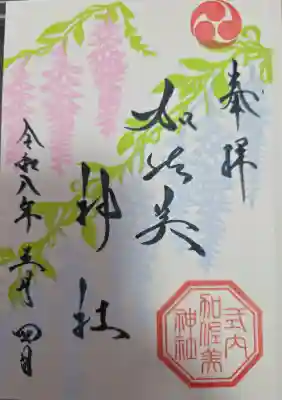 奉拝
加佐美
神社
令和八年三月四日
式内
加佐美
神社